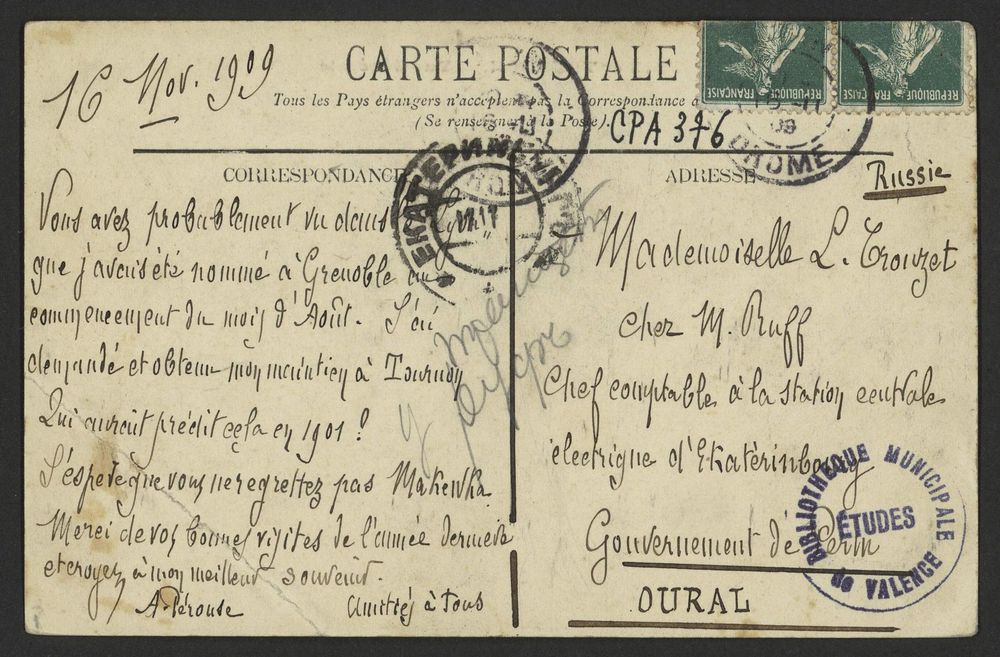 16 Nov. 1909
CARTE POSTALE
Tous les Pays étrangers n'acceptent pas la Correspondance a
(Se renseigner à la Poste).
CPA 376
REPUBLIQUE FRANÇAISE
REPUBLIQUE FRANÇAISE
DROME
ЕКАТЕРИН
CORRESPONDANCE
Vous avez probablement vu dans
que j'avais été nommé à Grenoble au
commencement du mois d'Août. J'ai
demandé et obtenu mon maintien à Tournon
Qui aurait prédit cela en 1901 ?
J'espère que vous ne regrettez pas Makewka
Merci de vos bonnes visites de l'année dernière
et croyez à mon meilleur souvenir.
A. Pérouse Amitiés à Tous
ADRESSE
Russie
Mademoiselle L. Trouzet
chez M. Ruff
Chef comptable à la station centrale
électrique d'Ekatèrinbourg
Gouvernement de Perm
OURAL
BIBLIOTHEQUE MUNICIPALE
ÉTUDES
de VALENCE